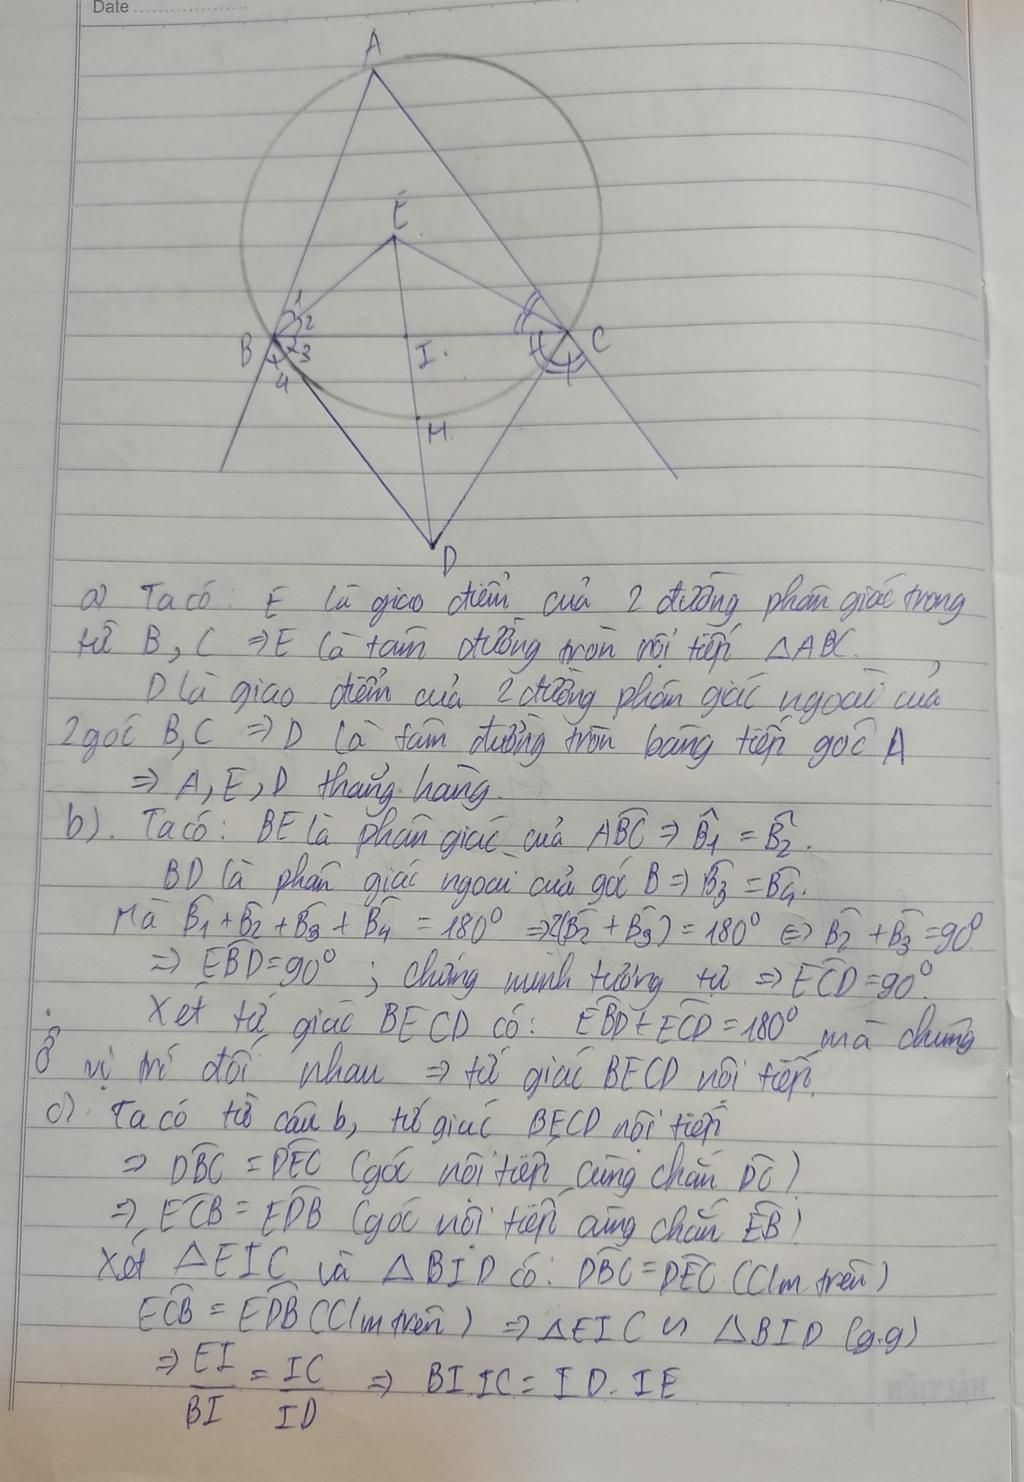 Date
A
E
1
2
B
3
4
I
C
M
D
a) Ta có: E là giao điểm của 2 đường phân giác trong
từ B, C => E là tâm đường tròn nội tiếp △ABC.
D là giao điểm của 2 đường phân giác ngoài của
2 góc B, C => D là tâm đường tròn bàng tiếp góc A
=> A, E, D thẳng hàng.
b). Ta có: BE là phân giác của ABC => B̂1 = B̂2.
BD là phân giác ngoài của góc B => B̂3 = B̂4.
Mà B̂1 + B̂2 + B̂3 + B̂4 = 180° => 2(B̂2 + B̂3) = 180° <=> B̂2 + B̂3 = 90°
=> EBD = 90° ; chứng minh tương tự => ECD = 90°.
Xét tứ giác BECD có: EBD + ECD = 180° mà chúng
ở vị trí đối nhau => tứ giác BECD nội tiếp.
c) Ta có từ câu b, tứ giác BECD nội tiếp
=> DBC = DEC (góc nội tiếp cùng chắn DC)
=> ECB = EDB (góc nội tiếp cùng chắn EB)
Xét △EIC và △BID có: DBC = DEC (C/m trên)
ECB = EDB (C/m trên) => △EIC ∽ △BID (g.g)
=> EI/BI = IC/ID => BI.IC = ID.IE